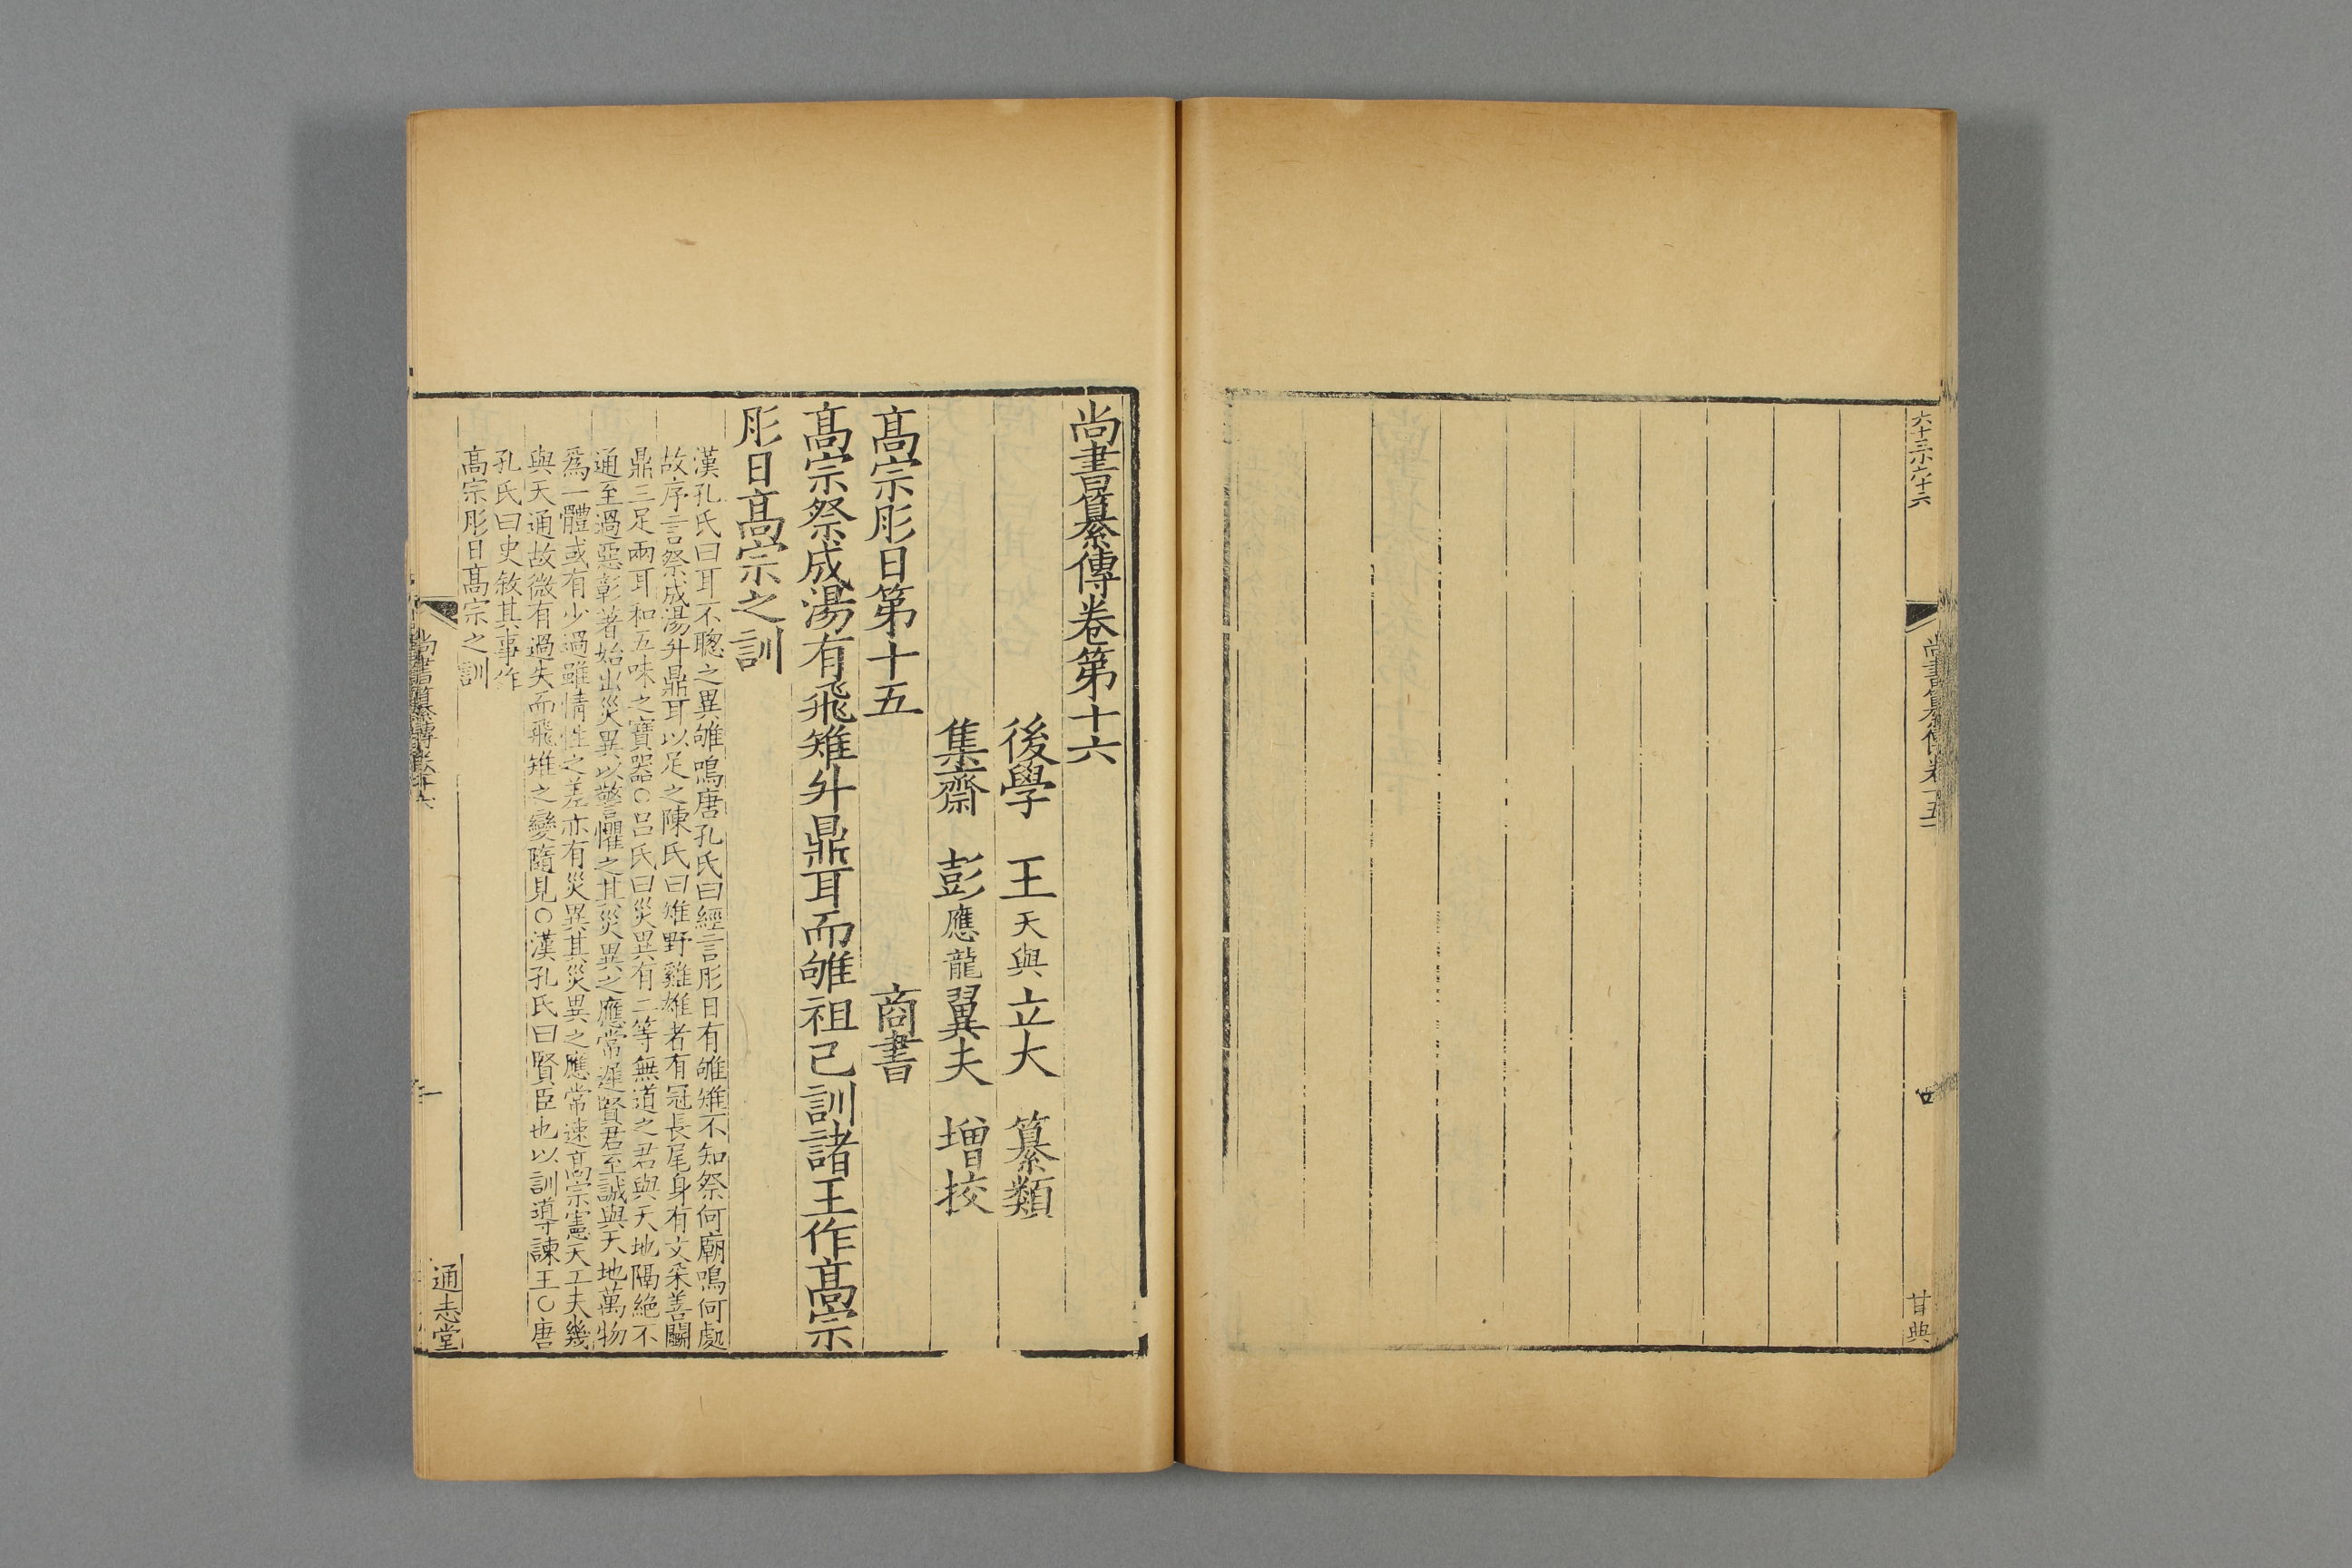 六十三 小六十六
尚書纂傳卷十五
甘典
尚書纂傳卷第十六
後學　王天與立大　纂類
集齋　彭應龍翼夫　增挍
髙宗肜日第十五　商書
髙宗祭成湯有飛雉升鼎耳而雊祖己訓諸王作髙宗
肜日髙宗之訓
漢孔氏曰耳不聰之異雊鳴唐孔氏曰經言肜日有雊雉不知祭何廟鳴何處
故序言祭成湯升鼎耳以足之陳氏曰雉野雞雄者有冠長尾身有文采善鬭
鼎三足兩耳和五味之寶器○呂氏曰災異有二等無道之君與天地隔絶不
通至過惡彰著始出災異以警懼之其災異之應常遲賢君至誠與天地萬物
爲一體或有少過雖情性之差亦有災異其災異之應常速髙宗憲天工夫幾
與天通故微有過失而飛雉之變隨見○漢孔氏曰賢臣也以訓導諫王○唐
孔氏曰史敘其事作
髙宗肜日髙宗之訓
尚書纂傳卷十六
一
通志堂